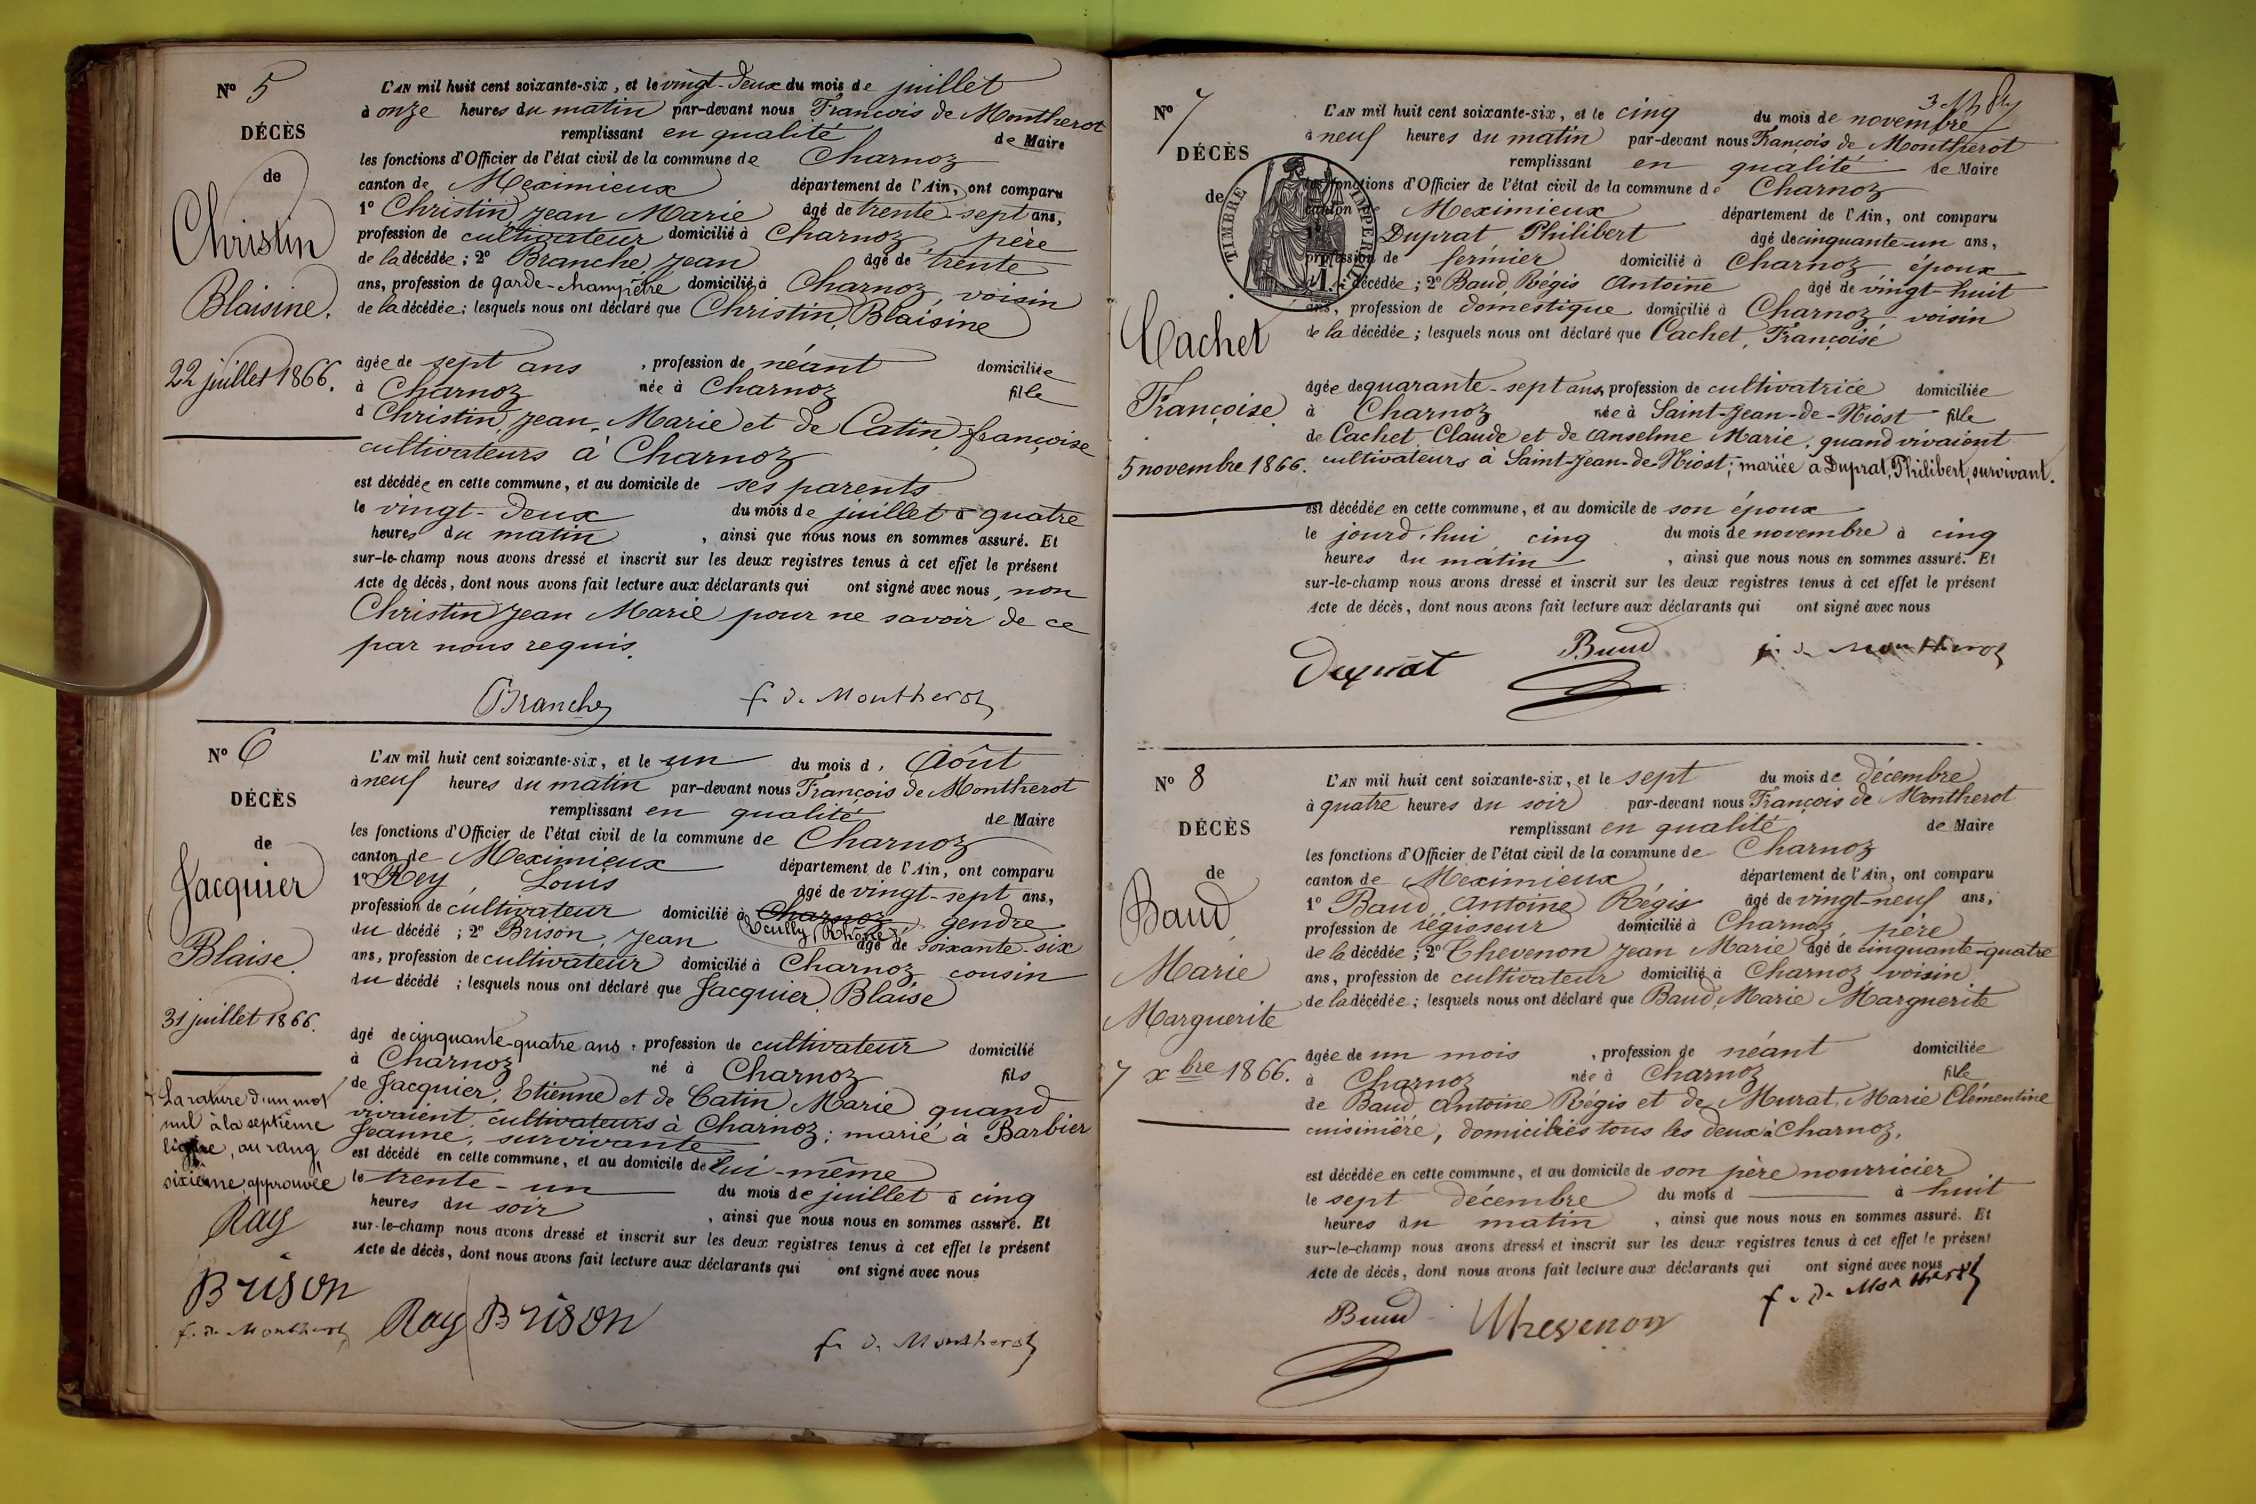 N° 5
DÉCÈS
de
Christin
Blaisine.
22 juillet 1866.
L'AN mil huit cent soixante-six, et le vingt-deux du mois de juillet
à onze heures du matin par-devant nous François de Montherot
remplissant en qualité de Maire
les fonctions d'Officier de l'état civil de la commune de Charnoz
canton de Meximieux département de l'Ain, ont comparu
1° Christin, Jean Marie âgé de trente-sept ans,
profession de cultivateur domicilié à Charnoz, père
de la décédée; 2° Branche, Jean âgé de trente
ans, profession de garde-champêtre domicilié à Charnoz, voisin
de la décédée; lesquels nous ont déclaré que Christin, Blaisine
âgée de sept ans, profession de néant domiciliée
à Charnoz née à Charnoz fille
d Christin, Jean, Marie et de Catin, françoise
cultivateurs à Charnoz
est décédée en cette commune, et au domicile de ses parents
le vingt-deux du mois de juillet à quatre
heures du matin, ainsi que nous nous en sommes assuré. Et
sur-le-champ nous avons dressé et inscrit sur les deux registres tenus à cet effet le présent
Acte de décès, dont nous avons fait lecture aux déclarants qui ont signé avec nous, non
Christin Jean Marie pour ne savoir de ce
par nous requis.
Branche f. d. Montherot
N° 6
DÉCÈS
de
Jacquier
Blaise.
31 juillet 1866.
La rature d'un mot
nul à la septième
ligne, au rang
sixième approuvée
Ray
Brison
f. d. Montherot
L'AN mil huit cent soixante-six, et le un du mois d, Août
à neuf heures du matin par-devant nous François de Montherot
remplissant en qualité de Maire
les fonctions d'Officier de l'état civil de la commune de Charnoz
canton de Meximieux département de l'Ain, ont comparu
1° Rey, Louis âgé de vingt-sept ans,
profession de cultivateur domicilié à Charnoz, gendre
Ecully (Rhône)
du décédé; 2° Brison, Jean âgé de soixante-six
ans, profession de cultivateur domicilié à Charnoz cousin
du décédé; lesquels nous ont déclaré que Jacquier, Blaise
âgé de cinquante-quatre ans, profession de cultivateur domicilié
à Charnoz né à Charnoz fils
de Jacquier, Etienne et de Catin, Marie quand
vivaient, cultivateurs à Charnoz; marié à Barbier
Jeanne, survivante
est décédé en cette commune, et au domicile de lui-même
le trente-un du mois de juillet à cinq
heures du soir, ainsi que nous nous en sommes assuré. Et
sur-le-champ nous avons dressé et inscrit sur les deux registres tenus à cet effet le présent
Acte de décès, dont nous avons fait lecture aux déclarants qui ont signé avec nous
Ray Brison f. d. Montherot
N° 7
DÉCÈS
de
TIMBRE IMPERIAL
Cachet
Françoise.
5 novembre 1866.
L'AN mil huit cent soixante-six, et le cinq du mois de novembre
à neuf heures du matin par-devant nous François de Montherot
remplissant en qualité de Maire
les fonctions d'Officier de l'état civil de la commune de Charnoz
canton de Meximieux département de l'Ain, ont comparu
1° Duprat Philibert âgé de cinquante-un ans,
profession de fermier domicilié à Charnoz époux
de la décédée; 2° Baud, Régis Antoine âgé de vingt-huit
ans, profession de domestique domicilié à Charnoz voisin
de la décédée; lesquels nous ont déclaré que Cachet, Françoise
âgée de quarante-sept ans, profession de cultivatrice domiciliée
à Charnoz née à Saint-Jean-de-Niost fille
de Cachet Claude et de Anselme Marie, quand vivaient
cultivateurs à Saint-Jean-de-Niost; mariée à Duprat, Philibert, survivant.
est décédée en cette commune, et au domicile de son époux
le jourd'hui cinq du mois de novembre à cinq
heures du matin, ainsi que nous nous en sommes assuré. Et
sur-le-champ nous avons dressé et inscrit sur les deux registres tenus à cet effet le présent
Acte de décès, dont nous avons fait lecture aux déclarants qui ont signé avec nous
Duprat Baud f. d. Montherot
N° 8
DÉCÈS
de
Baud,
Marie
Marguerite
7 xbre 1866.
L'AN mil huit cent soixante-six, et le sept du mois de décembre
à quatre heures du soir par-devant nous François de Montherot
remplissant en qualité de Maire
les fonctions d'Officier de l'état civil de la commune de Charnoz
canton de Meximieux département de l'Ain, ont comparu
1° Baud, Antoine Régis âgé de vingt-neuf ans,
profession de régisseur domicilié à Charnoz, père
de la décédée; 2° Thevenon Jean Marie âgé de cinquante-quatre
ans, profession de cultivateur domicilié à Charnoz voisin
de la décédée; lesquels nous ont déclaré que Baud, Marie Marguerite
âgée de un mois, profession de néant domiciliée
à Charnoz née à Charnoz fille
de Baud Antoine Régis et de Murat, Marie Clémentine
cuisinière, domiciliés tous les deux à Charnoz.
est décédée en cette commune, et au domicile de son père nourricier
le sept décembre du mois d à huit
heures du matin, ainsi que nous nous en sommes assuré. Et
sur-le-champ nous avons dressé et inscrit sur les deux registres tenus à cet effet le présent
Acte de décès, dont nous avons fait lecture aux déclarants qui ont signé avec nous
Baud Thevenon f. d. Montherot